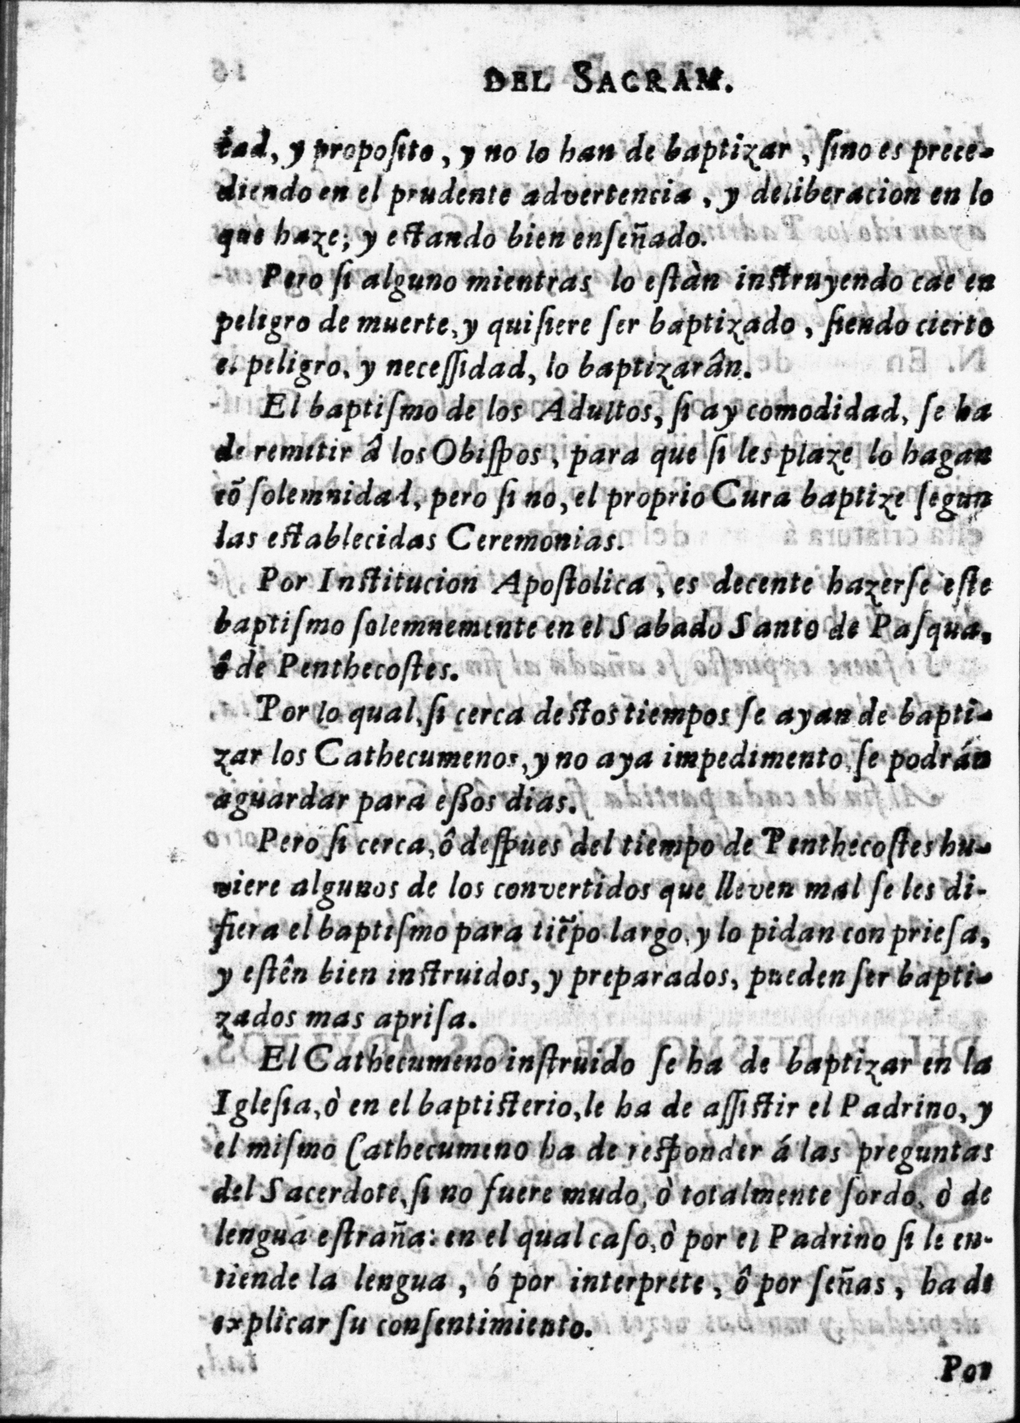 DEL SACRAM.
tad, y proposito, y no lo han de baptizar, sino es prece-
diendo en el prudente advertencia, y deliberacion en lo
que haze; y estando bien enseñado.
Pero si alguno mientras lo estàn instruyendo cae en
peligro de muerte, y quisiere ser baptizado, siendo cierto
el peligro, y necessidad, lo baptizarân.
El baptismo de los Adultos, si ay comodidad, se ha
de remitir â los Obispos, para que si les plaze lo hagan
cõ solemnidad, pero si no, el proprio Cura baptize segun
las establecidas Ceremonias.
Por Institucion Apostolica, es decente hazerse este
baptismo solemnemente en el Sabado Santo de Pasqua,
ô de Penthecostes.
Por lo qual, si cerca destos tiempos se ayan de bapti-
zar los Cathecumenos, y no aya impedimento, se podrán
aguardar para essos dias.
Pero si cerca, ô despues del tiempo de Penthecostes hu-
viere algunos de los convertidos que lleven mal se les di-
fiera el baptismo para tiẽpo largo, y lo pidan con priesa,
y estên bien instruidos, y preparados, pueden ser bapti-
zados mas aprisa.
El Cathecumeno instruido se ha de baptizar en la
Iglesia, ò en el baptisterio, le ha de assistir el Padrino, y
el mismo Cathecumeno ha de responder á las preguntas
del Sacerdote, si no fuere mudo, ò totalmente sordo, ò de
lengua estraña: en el qual caso, ò por el Padrino si le en-
tiende la lengua, ó por interprete, ô por señas, ha de
explicar su consentimiento.
Por